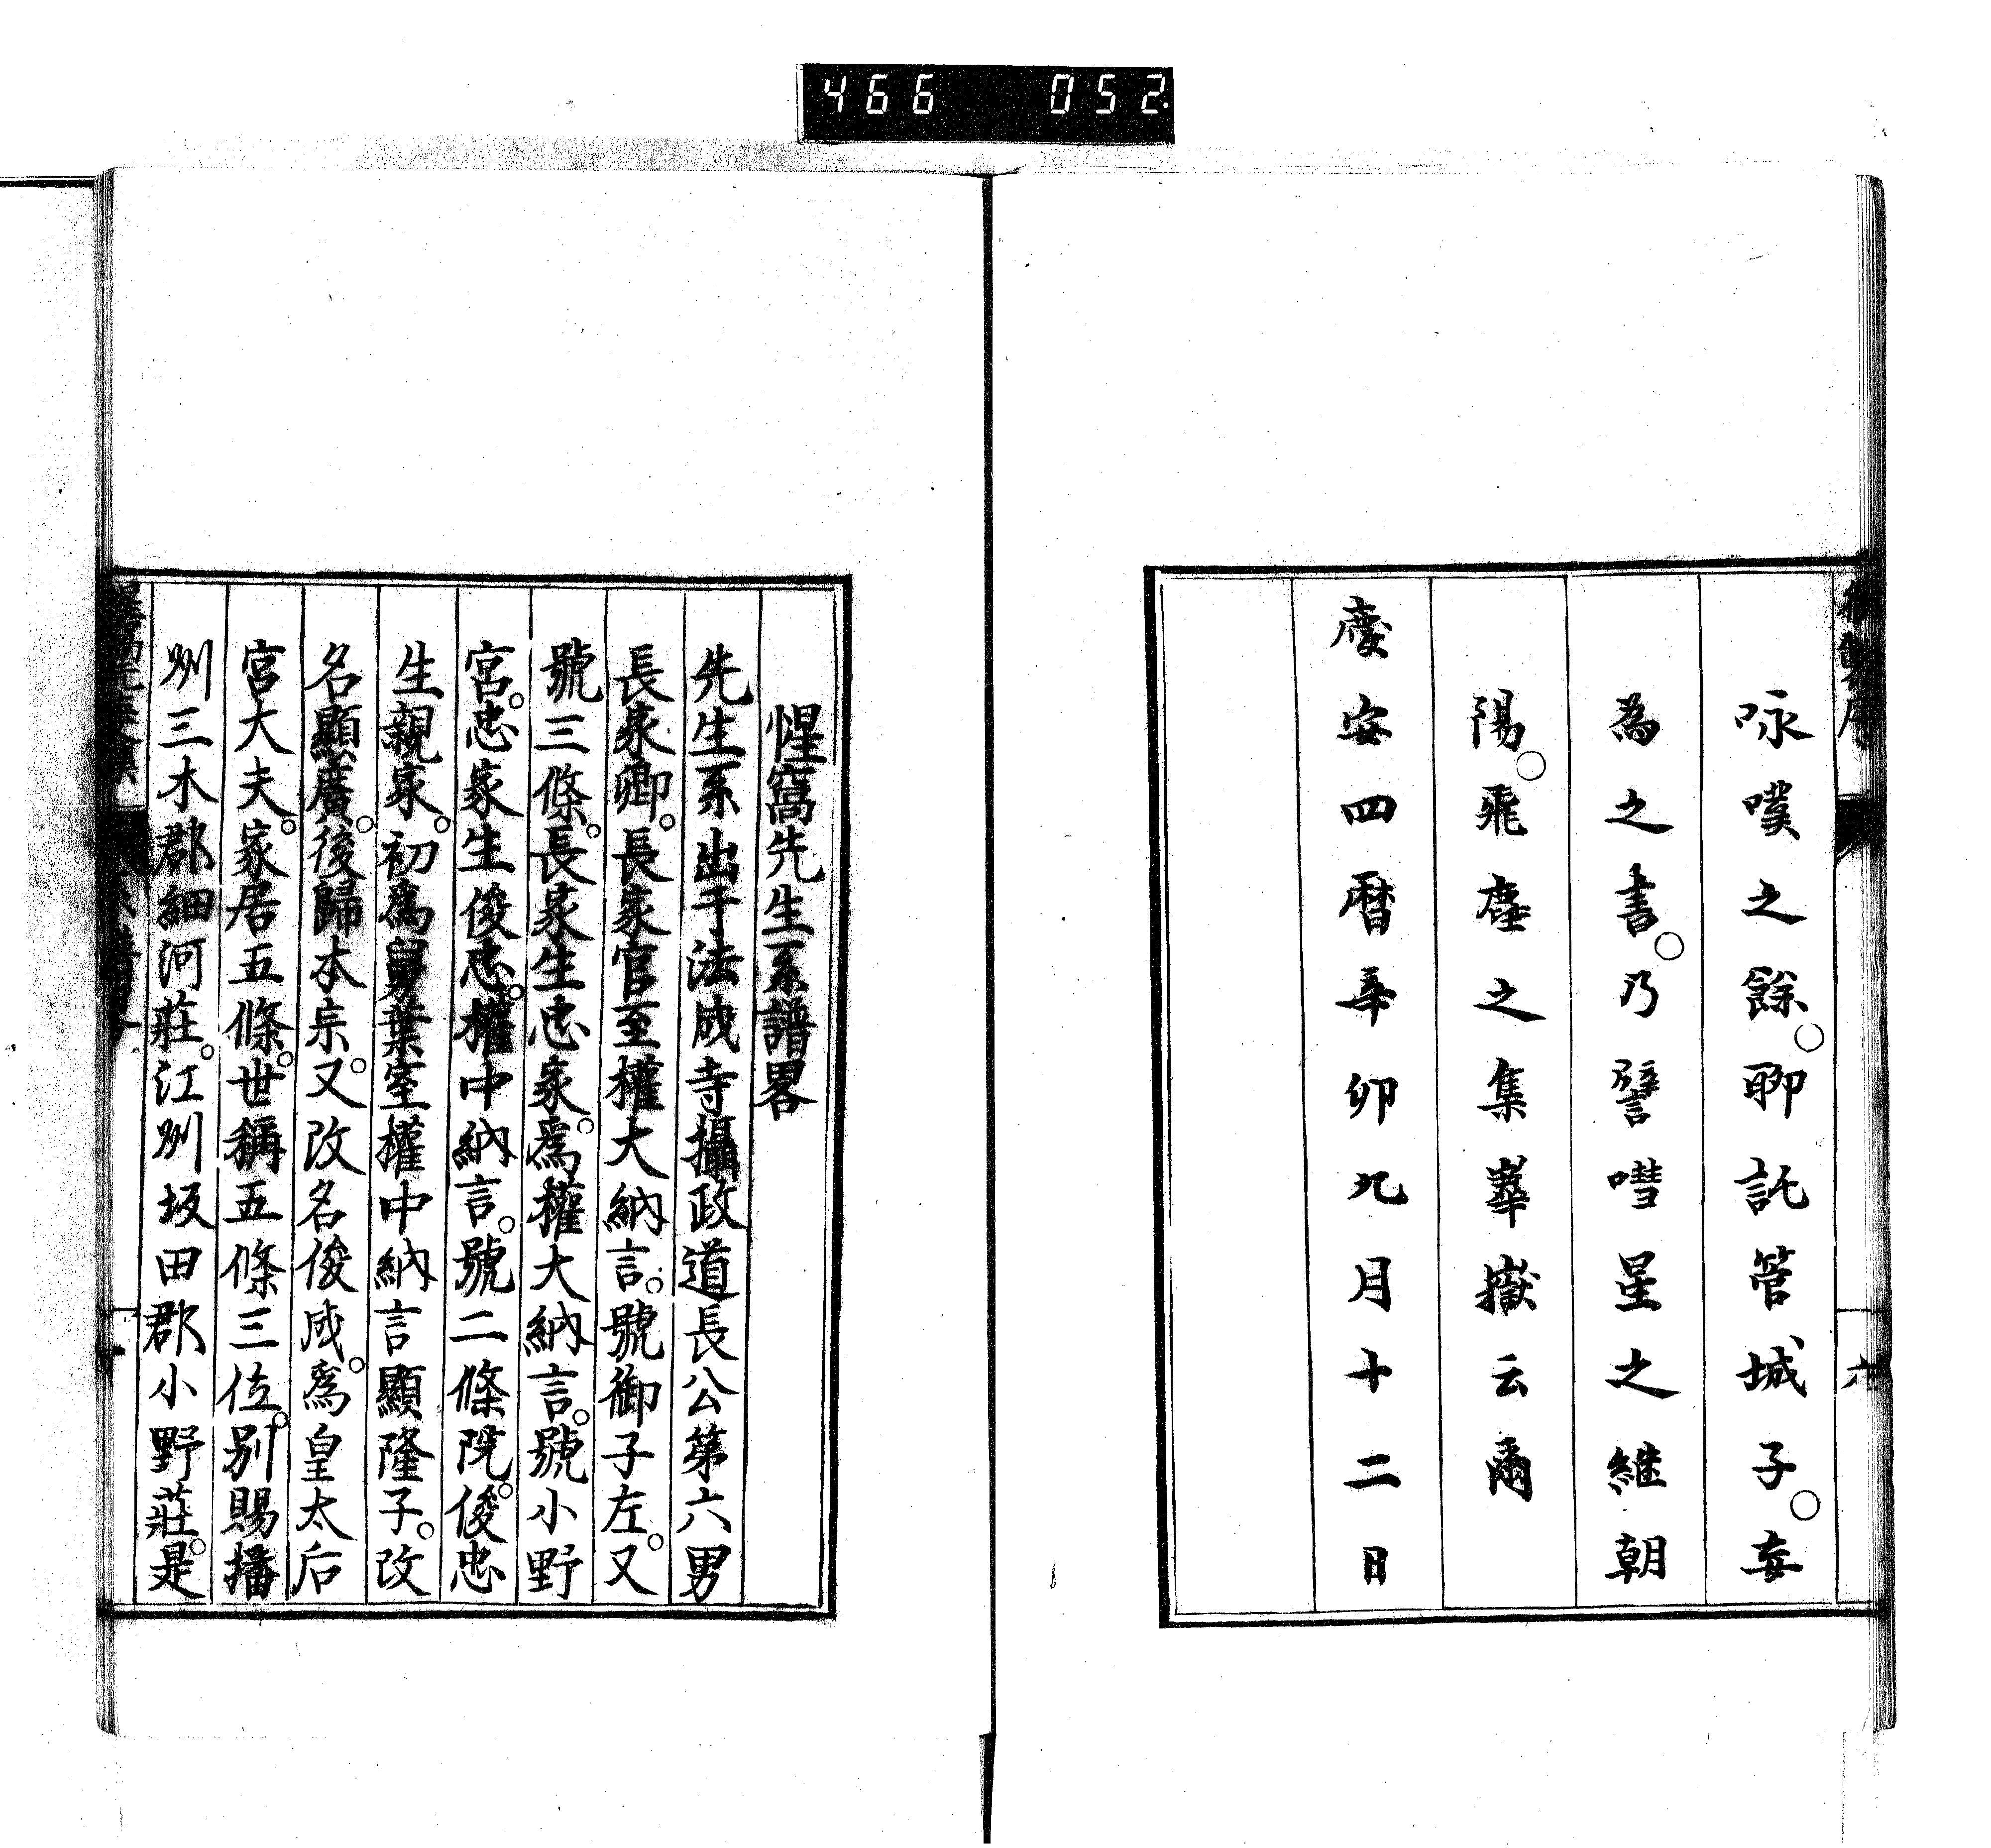 466 052
咏嘆之餘。聊託管城子。妄
為之書。乃譬嘒星之継朝
陽。飛塵之集華嶽云爾
慶安四曆辛卯九月十二日
六
惺窩先生系譜畧
先生系出于法成寺攝政道長公第六男
長家卿。長家官至權大納言。號御子左。又
號三條。長家生忠家。爲權大納言。號小野
宮。忠家生俊忠。權中納言。號二條院。俊忠
生親家。初爲舅葉室權中納言顯隆子。改
名顯廣。後歸本宗。又改名俊成。爲皇太后
宮大夫。家居五條。世稱五條三位。別賜播
州三木郡細河莊。江州坂田郡小野莊。是